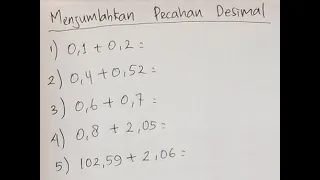 Menjumlahkan Pecahan Desimal
1) 0,1 + 0,2 =
2) 0,4 + 0,52 =
3) 0,6 + 0,7 =
4) 0,8 + 2,05 =
5) 102,59 + 2,06 =